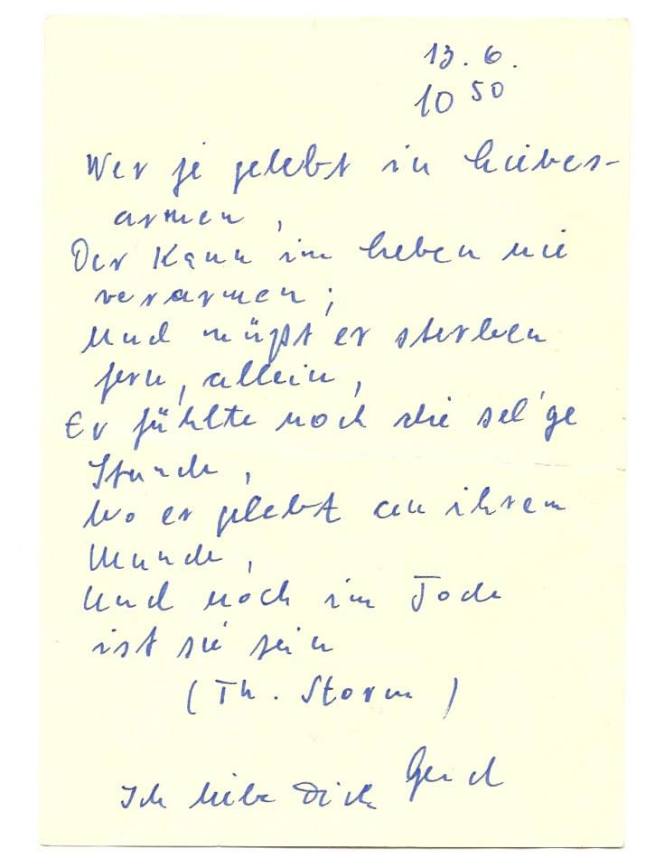 13. 6.
10 50
Wer je gelebt in Liebes-
armen,
Der Kann im Leben nie
verarmen;
Und müßt er sterben
fern, allein,
Er fühlte noch die sel'ge
Stunde,
Wo er gelebt an ihrem
Munde,
Und noch im Tode
ist sie sein
(Th. Storm)
Ich liebe Dich Gerd